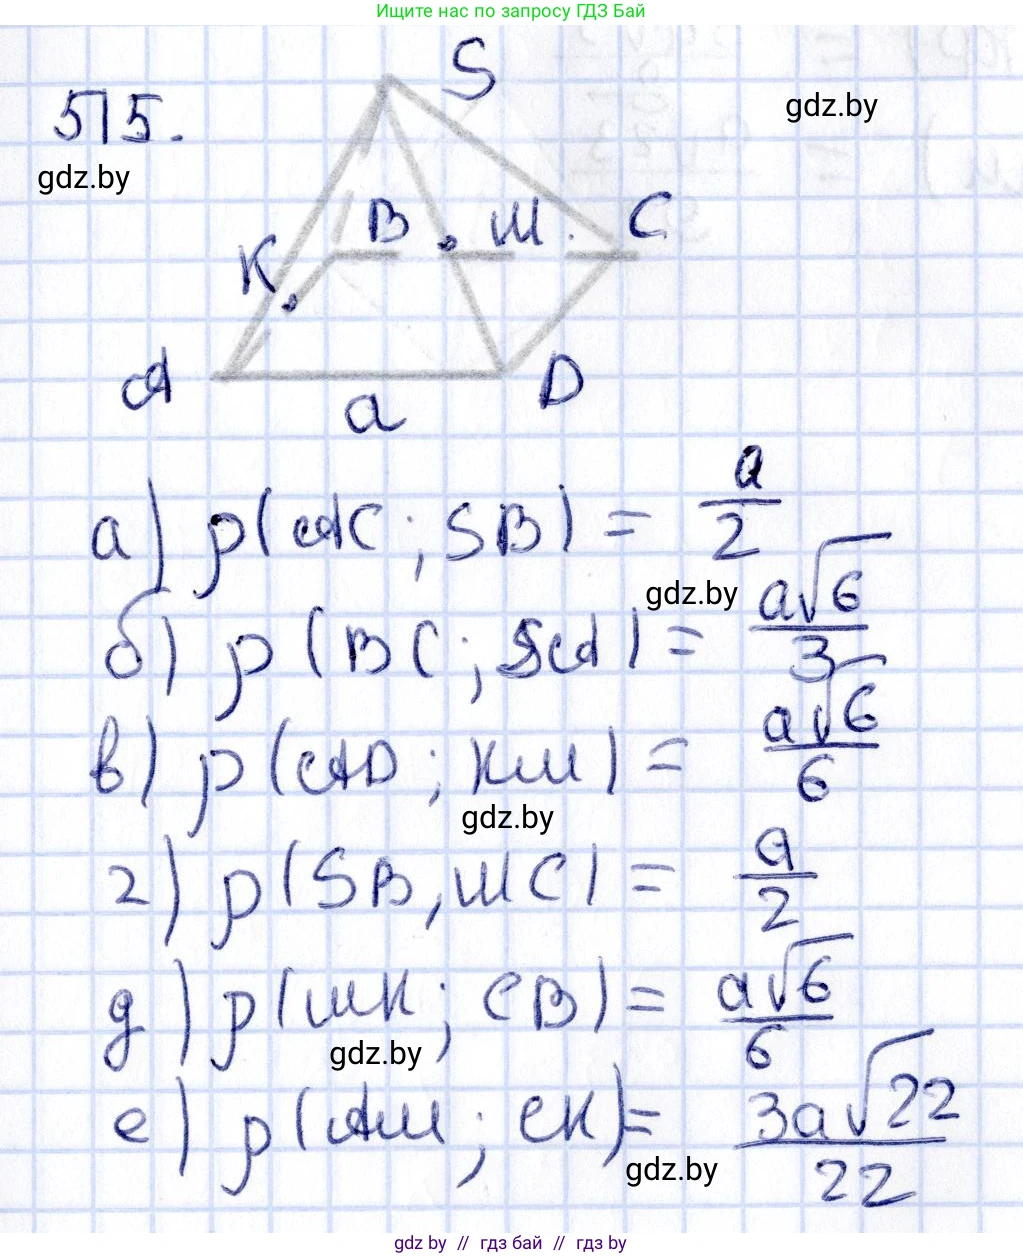 Ищите нас по запросу ГДЗ Бай
S
515.
gdz.by
gdz.by
B M C
K
A D
a
а) ρ(AC; SB) = a/2
gdz.by
б) ρ(BC; SA) = a√6/3
в) ρ(AD; KM) = a√6/6
gdz.by
г) ρ(SB, MC) = a/2
д) ρ(MK; CB) = a√6/6
gdz.by
е) ρ(AM; CK) = 3a√22/22
gdz.by
gdz.by // гдз бай // gdz.by